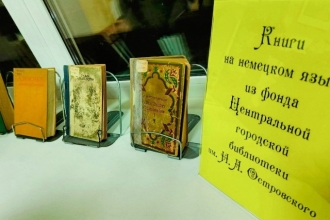 Книги
на немецком язы
из фонда
Центральной
городской
библиотеки
им. И.А. Островского